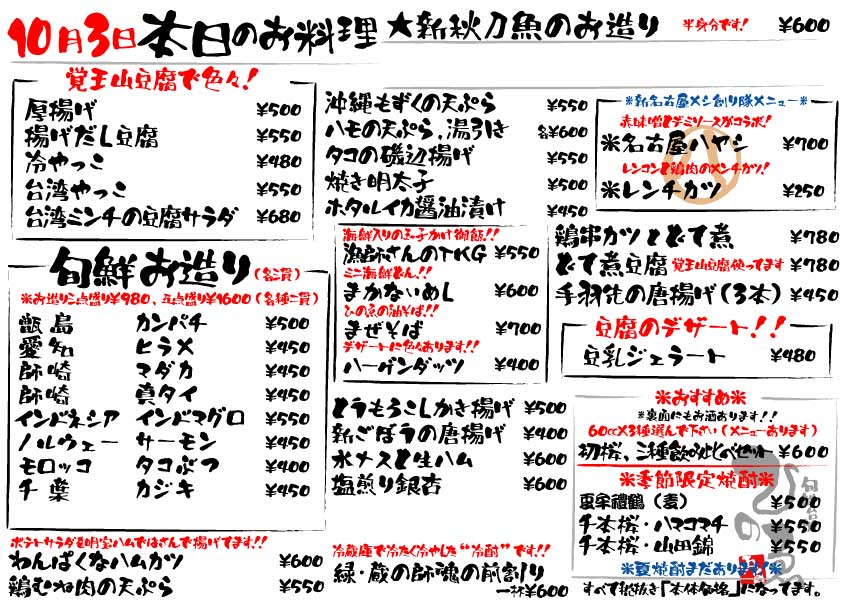 10月3日本日のお料理 ★新秋刀魚のお造り 半身分です! ¥600
覚王山豆腐で色々!
厚揚げ ¥500
揚げだし豆腐 ¥550
冷やっこ ¥480
台湾やっこ ¥550
台湾ミンチの豆腐サラダ ¥680
旬鮮お造り(各二貫)
※お造り三点盛り¥980、五点盛り¥1600(各種二貫)
甑島 カンパチ ¥500
愛知 ヒラメ ¥450
師崎 マダカ ¥450
師崎 真タイ ¥450
インドネシア インドマグロ ¥550
ノルウェー サーモン ¥450
モロッコ タコぶつ ¥400
千葉 カジキ ¥450
ポテトサラダを明宝ハムではさんで揚げてます!!
わんぱくなハムカツ ¥600
鶏むね肉の天ぷら ¥550
沖縄もずくの天ぷら ¥550
ハモの天ぷら、湯引き 各¥600
タコの磯辺揚げ ¥550
焼き明太子 ¥500
ホタルイカ醤油漬け ¥450
海鮮入りの玉子かけ御飯!!
漁師さんのTKG ¥550
ミニ海鮮どん!!
まかないめし ¥600
ひの魚の油そば!!
まぜそば ¥700
デザートに色々あります!!
ハーゲンダッツ ¥400
とうもろこしかき揚げ ¥500
新ごぼうの唐揚げ ¥400
水ナスと生ハム ¥600
塩煎り銀杏 ¥600
冷蔵庫で冷たく冷やした"冷酎"です!!
緑・蔵の師魂の前割り
一杯¥600
※新名古屋メシ創り隊メニュー※
赤味噌とデミソースがコラボ!
※名古屋ハヤシ ¥700
レンコンと鶏肉のメンチカツ!
※レンチカツ ¥250
鶏串カツとどて煮 ¥780
どて煮豆腐 覚王山豆腐使ってます ¥780
手羽先の唐揚げ(3本) ¥450
豆腐のデザート!!
豆乳ジェラート ¥480
※おすすめ※
※裏面にもお酒あります!!
60cc×3種選んで下さい(メニューあります)
初桜、三種飲みくらべセット ¥600
※季節限定焼酎※
亜牢禮鶴(麦) ¥500
千本桜・ハマコマチ ¥550
千本桜・山田錦 ¥550
※夏焼酎まだあります!※
すべて税抜き「本体価格」になってます。